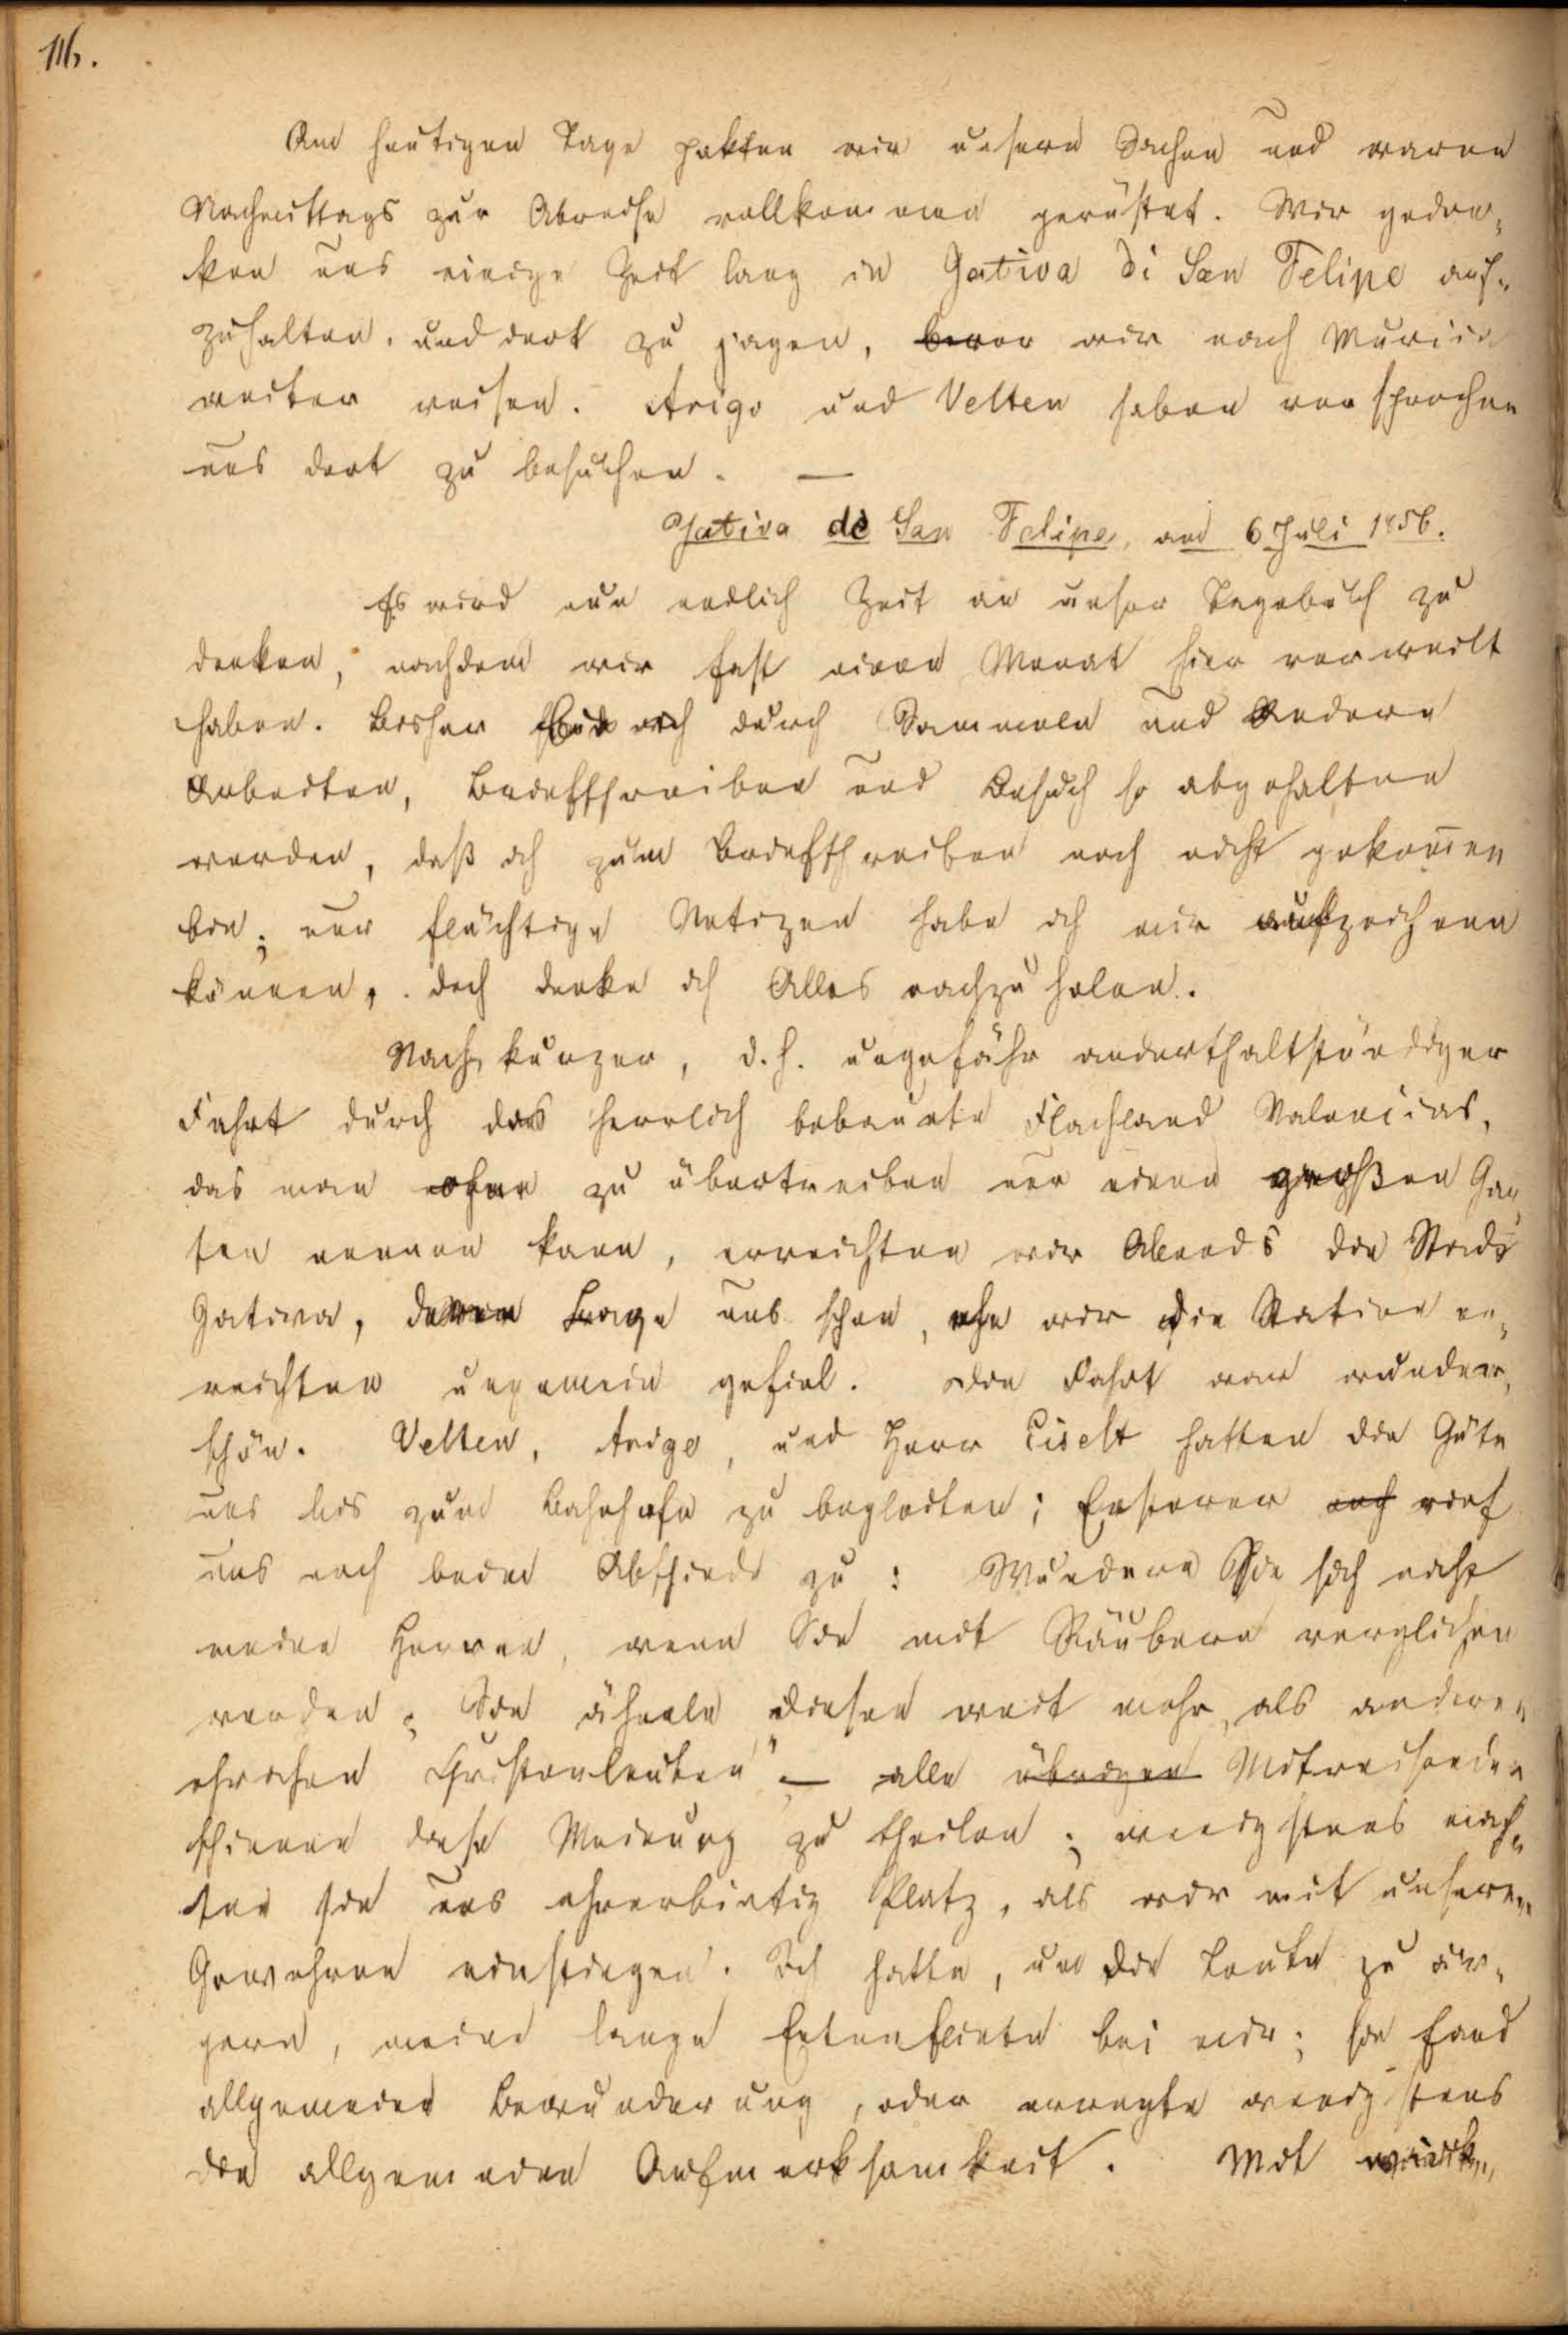 116.
Am heutigen Tage pakten wir unsern Sachen und waren
Nachmittags zur Abreise vollkommen gerüstet. Wir geden-
ken uns einige Zeit lang in Gativa di San Felipe auf-
zuhalten, und dort zu jagen, bevor wir nach Murcia
weiter reisen. Arigo und Velten haben versprochen
uns dort zu besuchen. —
Jativa de San Felipe, am 6 Juli 1856.
Es wird nun endlich Zeit an unser Tagebuch zu
denken, nachdem wir fast einen Monat hier verweilt
haben. Bisher bin ich durch Sammeln und Andere
Arbeiten, Briefschreiben und Besuch so abgehalten
worden, daß ich zum Briefschreiben noch nicht gekom̅en
bin; nur flüchtige Notizen habe ich mir aufzeichnen
können, doch denke ich Alles nachzuholen.
Nach kurzer, d. h. ungefähr anderthalbstündiger
Fahrt durch das herrlich bebaute Flachland Valencias,
das man ohne zu übertreiben nur einen großen Gar-
ten nennen kann, erreichten wir Abends die Stadt
Gativa, deren Lage uns schon, ehe wir die Station er-
reichten ungemein gefiel. Die Fahrt war wunder-
schön. Velten, Arigo, und Herr Eiselt hatten die Güte
uns bis zum Bahnhofe zu begleiten; Ersterer noch rief
uns noch beim Abschiede zu: Wundern Sie sich nicht
meine Herren, wenn Sie mit Räubern verglichen
werden; Sie ähneln diesen weit mehr, als andern
ehrlichen Christenleuten" — alle übrigen Mitreisenden
schienen diese Meinung zu theilen; wenigstens mach-
ten sie uns ehrerbietig Platz, als wir mit unseren
Gewehren einstiegen. Ich hatte, um die Leute zu är-
gern, meine lange Entenflinte bei mir; sie fand
allgemeine Bewunderung, oder erregte wenigstens
die allgemeine Aufmerksamkeit. Mit